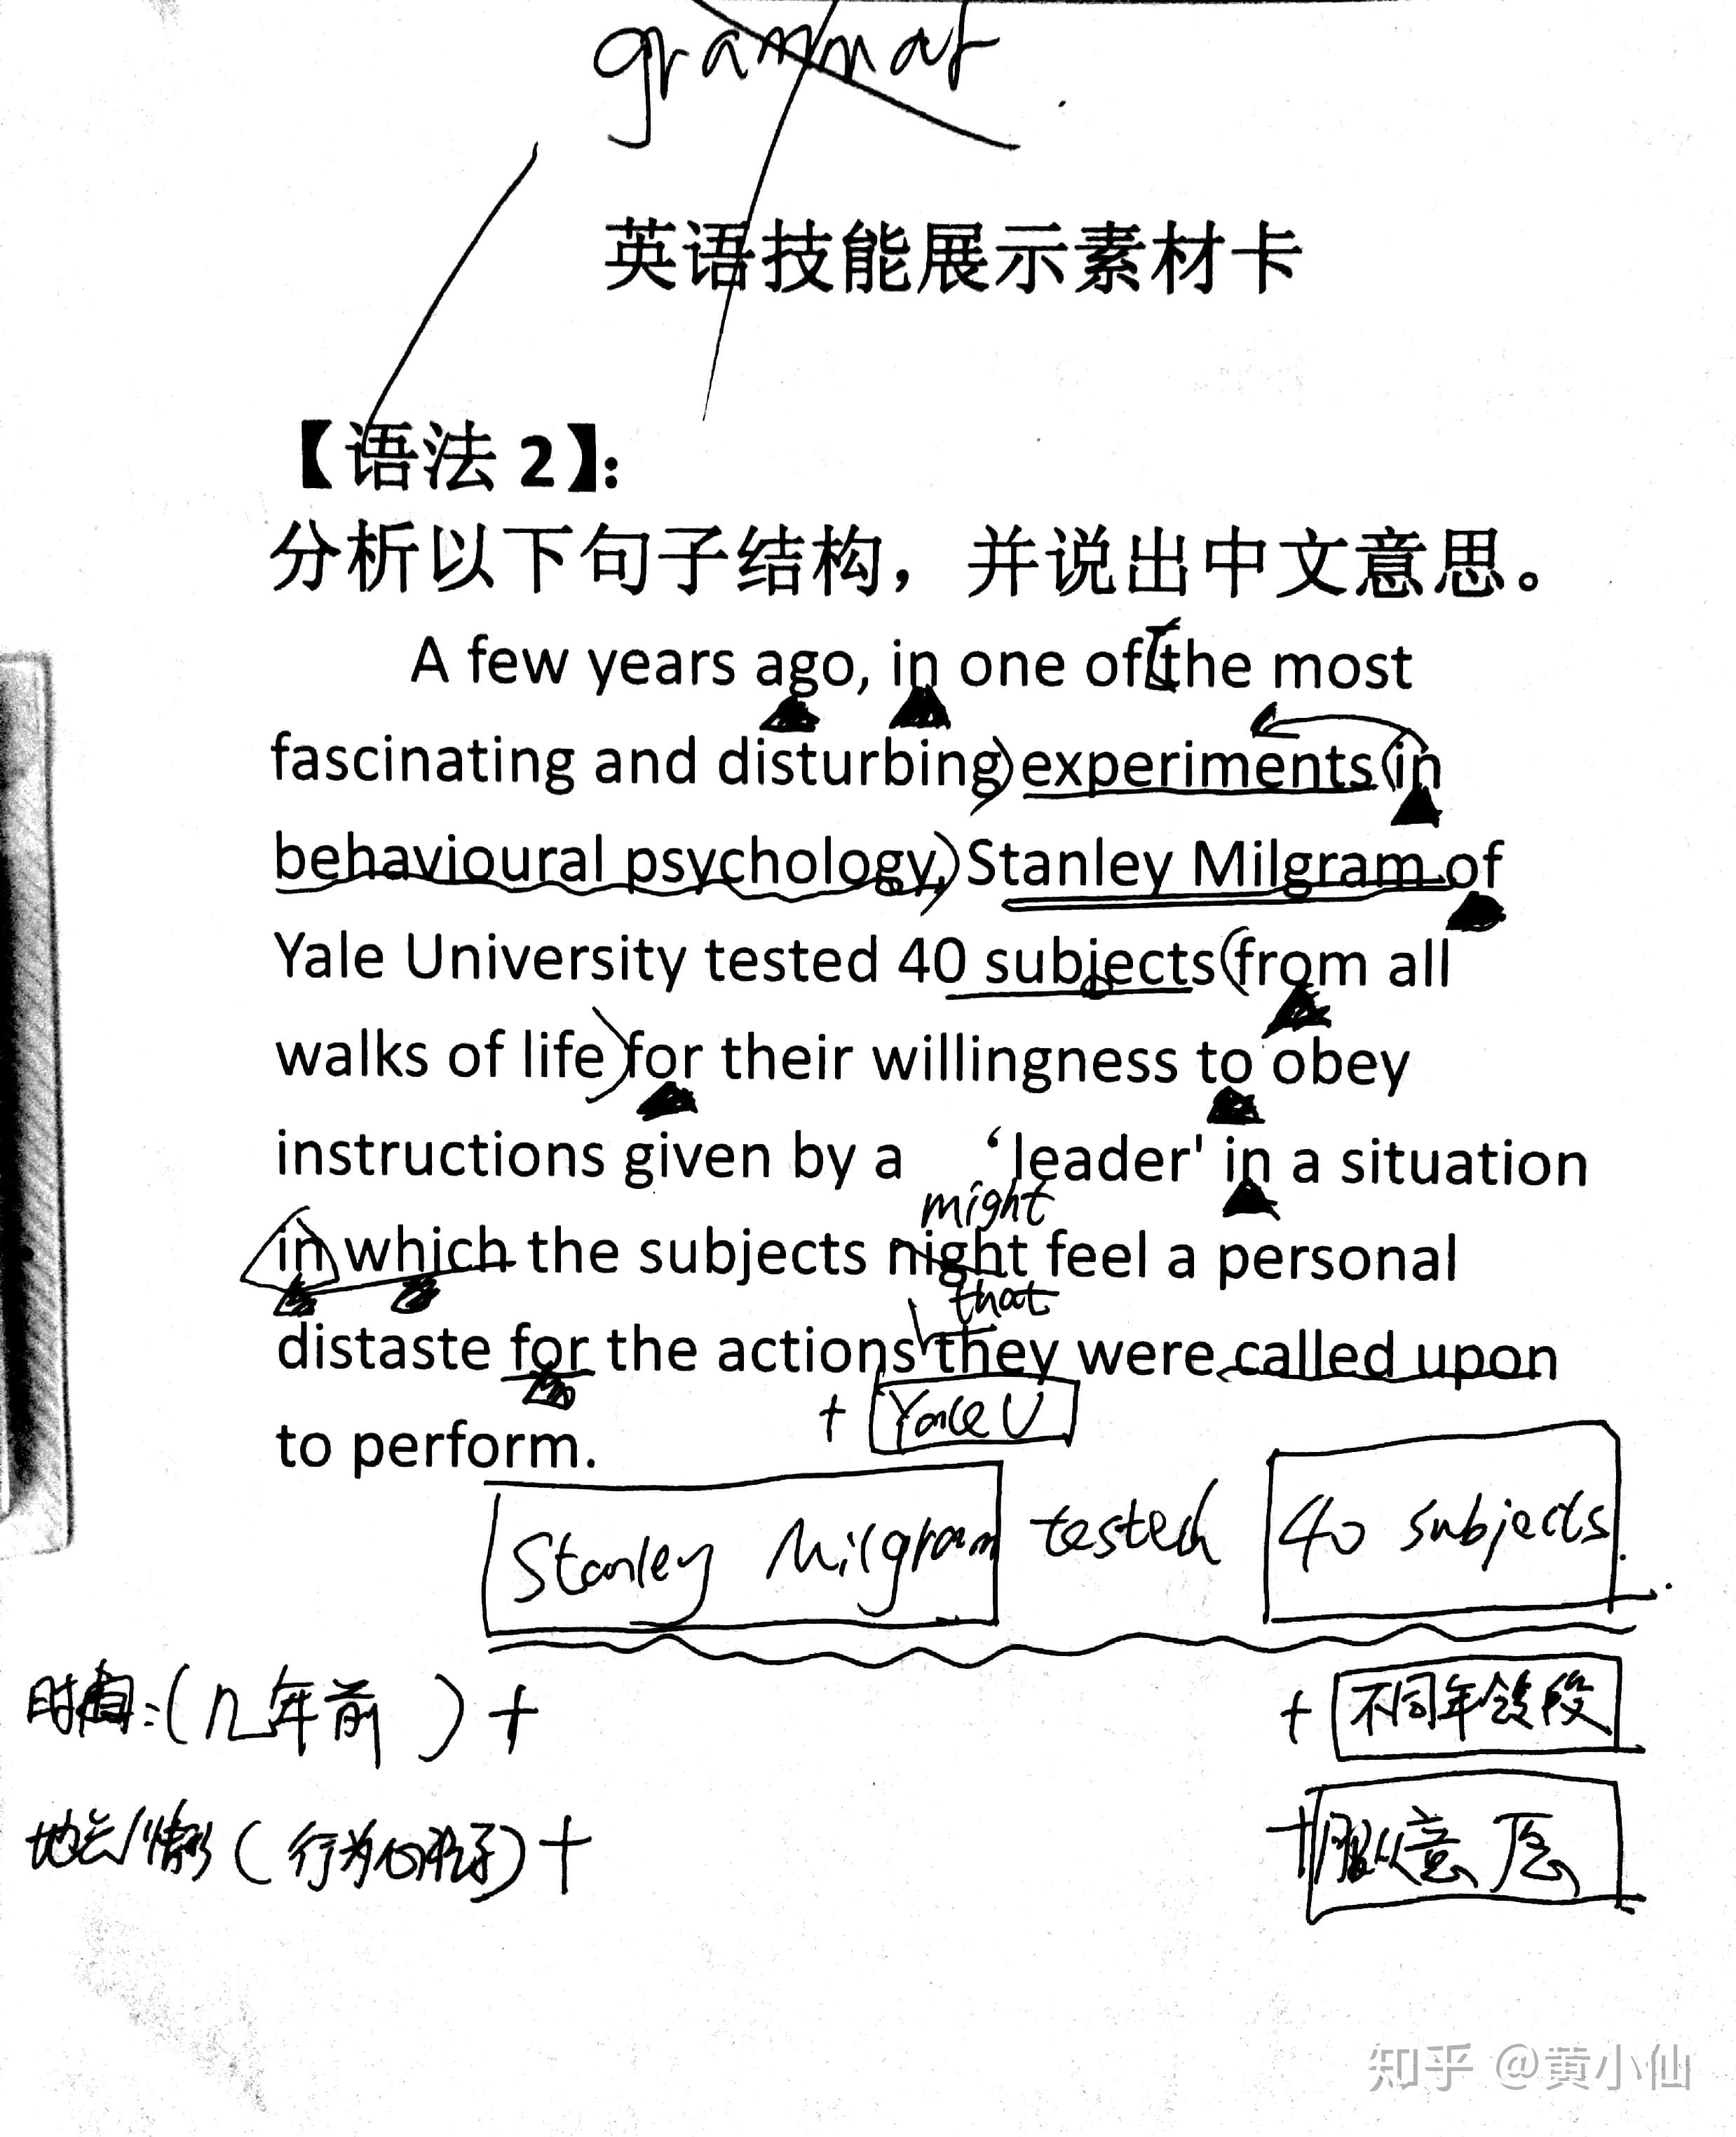 grammar
英语技能展示素材卡
【语法 2】：
分析以下句子结构，并说出中文意思。
A few years ago, in one of the most
fascinating and disturbing) experiments (in
behavioural psychology,) Stanley Milgram of
Yale University tested 40 subjects (from all
walks of life) for their willingness to obey
instructions given by a ‘leader' in a situation
might
in which the subjects night feel a personal
that
distaste for the actions they were called upon
+ Yale U
to perform.
Stanley Milgram tested 40 subjects.
时间:(几年前) + + 不同年龄段
地点/情形(行为心理学) + +服从意愿
知乎 @黄小仙